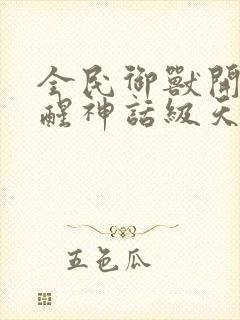 全民御獸開
醒神話級天
五色瓜